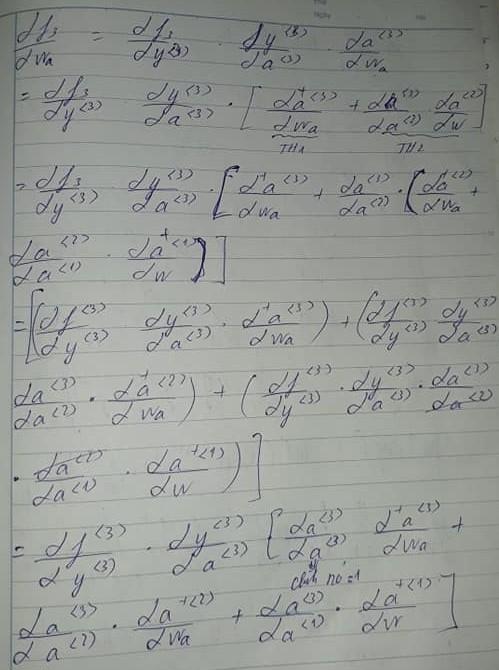 df₃/dwₐ = df₃/dy⁽³⁾ · dy⁽³⁾/da⁽³⁾ · da⁽³⁾/dwₐ
= df₃/dy⁽³⁾ dy⁽³⁾/da⁽³⁾ · [d⁺a⁽³⁾/dwₐ + da⁽³⁾/da⁽²⁾ · da⁽²⁾/dw]
TH1 TH2
= df₃/dy⁽³⁾ dy⁽³⁾/da⁽³⁾ · [d⁺a⁽³⁾/dwₐ + da⁽³⁾/da⁽²⁾ · (d⁺a⁽²⁾/dwₐ +
da⁽²⁾/da⁽¹⁾ · da⁺⁽¹⁾/dw)]
= [(df⁽³⁾/dy⁽³⁾ dy⁽³⁾/da⁽³⁾ · d⁺a⁽³⁾/dwₐ) + (df⁽³⁾/dy⁽³⁾ dy⁽³⁾/da⁽³⁾
da⁽³⁾/da⁽²⁾ · d⁺a⁽²⁾/dwₐ) + (df⁽³⁾/dy⁽³⁾ · dy⁽³⁾/da⁽³⁾ · da⁽³⁾/da⁽²⁾
· da⁽²⁾/da⁽¹⁾ · da⁺⁽¹⁾/dw)]
= df⁽³⁾/dy⁽³⁾ · dy⁽³⁾/da⁽³⁾ [da⁽³⁾/da⁽³⁾ d⁺a⁽³⁾/dwₐ +
nó =1
da⁽³⁾/da⁽²⁾ · da⁺⁽²⁾/dwₐ + da⁽³⁾/da⁽¹⁾ · da⁺⁽¹⁾/dw]